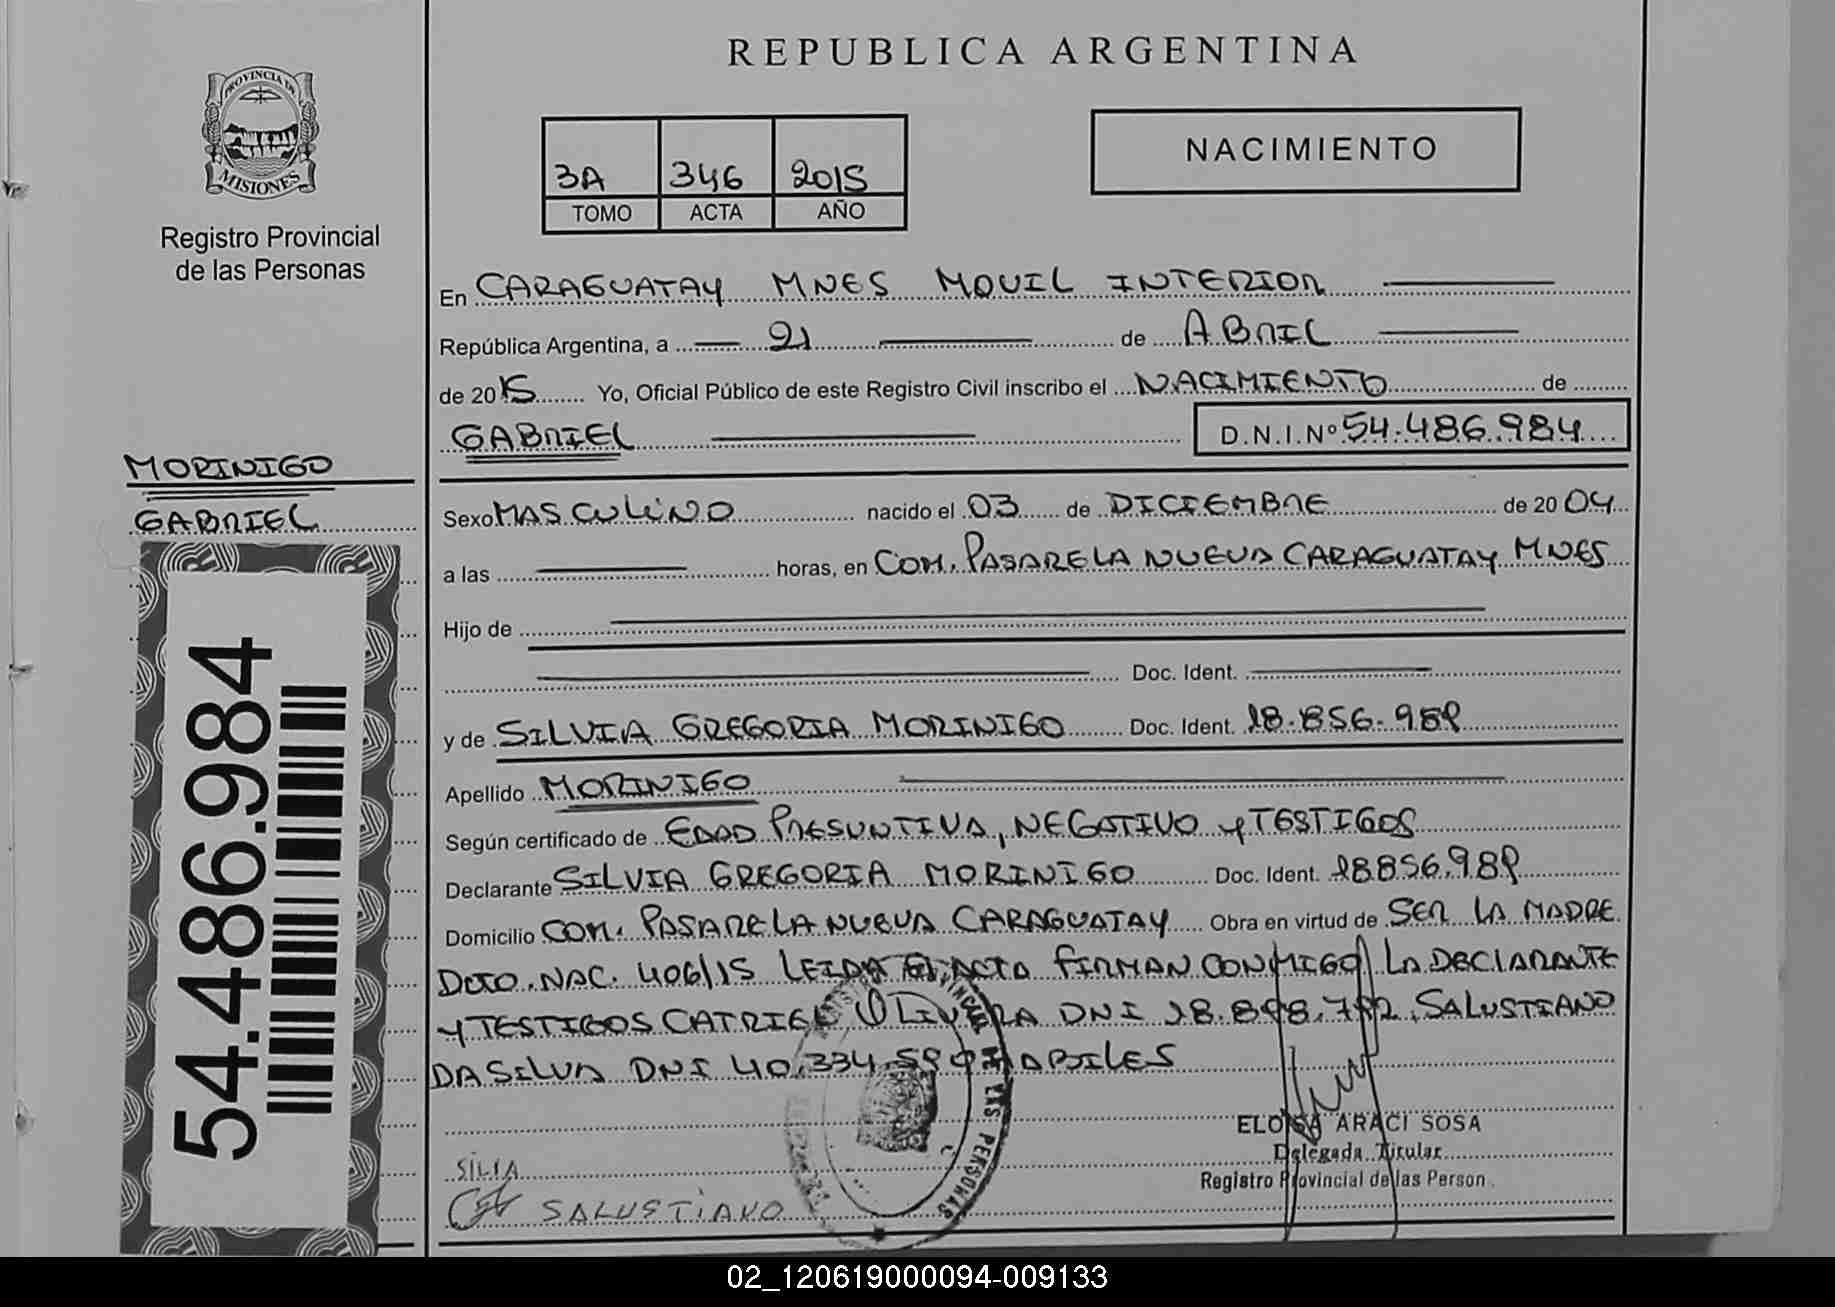 REPUBLICA ARGENTINA
PROVINCIA DE
MISIONES
Registro Provincial
de las Personas
3A 346 2015
TOMO ACTA AÑO
NACIMIENTO
En CARAGUATAY MNES MOVIL INTERIOR
República Argentina, a 21 de ABRIL
de 2015 Yo, Oficial Público de este Registro Civil inscribo el NACIMIENTO de
GABRIEL D.N.I.Nº 54.486.984
MORINIGO
GABRIEL
Sexo MASCULINO nacido el 03 de DICIEMBRE de 2004
a las horas, en COM. PASARELA NUEVA CARAGUATAY MNES
Hijo de
Doc. Ident.
y de SILVIA GREGORIA MORINIGO Doc. Ident. 18.856.989
Apellido MORINIGO
Según certificado de EDAD PRESUNTIVA, NEGATIVO Y TESTIGOS
Declarante SILVIA GREGORIA MORINIGO Doc. Ident. 18856.989
Domicilio COM. PASARELA NUEVA CARAGUATAY Obra en virtud de SER LA MADRE
DCTO. NAC. 406/15 LEIDA EL ACTA FIRMAN CONMIGO LA DECLARANTE
Y TESTIGOS CATRIEL OLIVERA DNI 18.898.792, SALUSTIANO
DA SILVA DNI 40.334.599 HABILES
54.486.984
SILIA
SALUSTIANO
ELOISA ARACI SOSA
Delegada Titular
Registro Provincial de las Person.
02_120619000094-009133